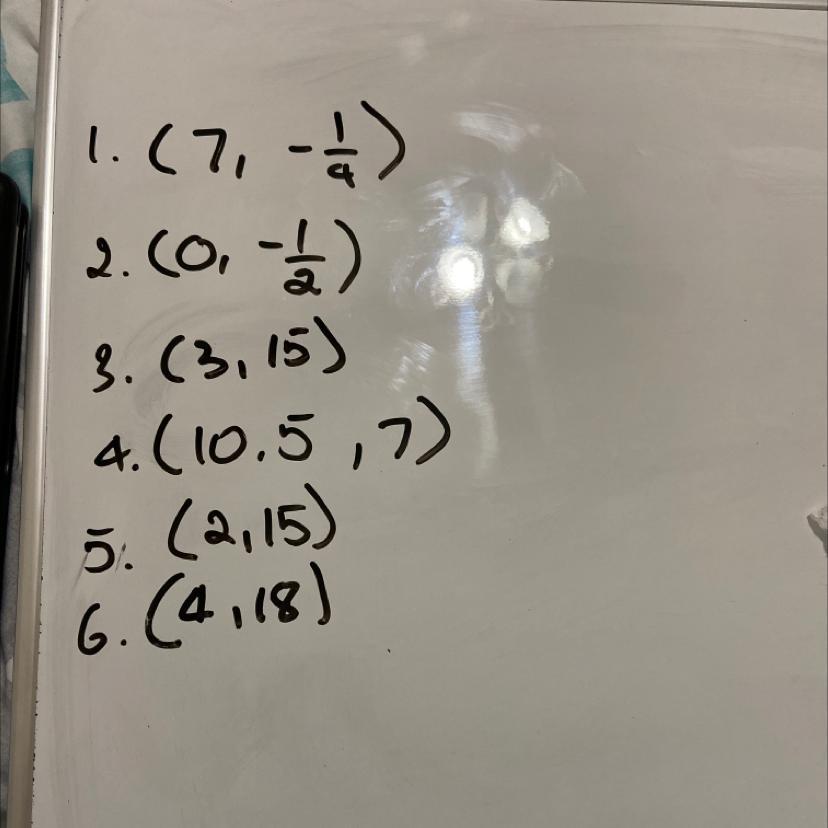 1. (7, -1/4)
2. (0, -1/2)
3. (3, 15)
4. (10.5, 7)
5. (2, 15)
6. (4, 18)